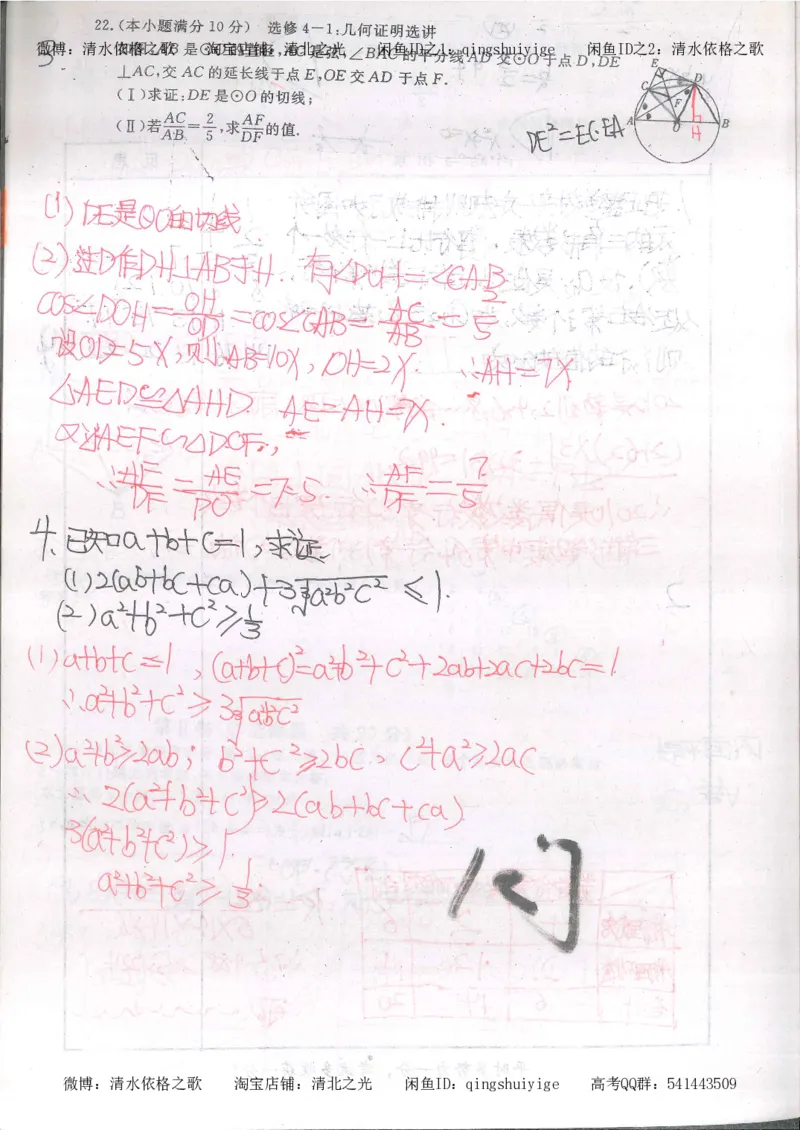 22.(本小题满分10分) 选修4-1:几何证明选讲
微博：清水依格之歌 淘宝店铺：清北之光 闲鱼ID之1：qingshuiyige 闲鱼ID之2：清水依格之歌
3
∠BAC的平分线AD交⊙O于点D,DE
⊥AC,交AC的延长线于点E,OE交AD于点F.
(Ⅰ)求证:DE是⊙O的切线;
(Ⅱ)若AC/AB=2/5,求AF/DF的值.
DE²=EC·EA
E D C F A O B H
(1) DE是⊙O的切线
(2) 过D作DH⊥AB于H. 有∠DOH=∠CAB
cos∠DOH=OH/OD=cos∠CAB=AC/AB=2/5
设OD=5x,则AB=10x, OH=2x. ∴AH=7x
△AED≌△AHD. AE=AH=7x.
又△AEF∽△DOF,
∴AF/DF=AE/DO=7:5. ∴AF/DF=7/5
4. 已知a+b+c=1,求证
(1) 2(ab+bc+ca)+3∛a²b²c² ≤1.
(2) a²+b²+c²≥1/3
(1) a+b+c=1, (a+b+c)²=a²+b²+c²+2ab+2ac+2bc=1
∴a²+b²+c²≥3∛a²b²c²
(2) a²+b²≥2ab; b²+c²≥2bc, c²+a²≥2ac
∴2(a²+b²+c²)≥2(ab+bc+ca)
3(a²+b²+c²)≥1.
a²+b²+c²≥1/3.
微博：清水依格之歌 淘宝店铺：清北之光 闲鱼ID：qingshuiyige 高考QQ群：541443509